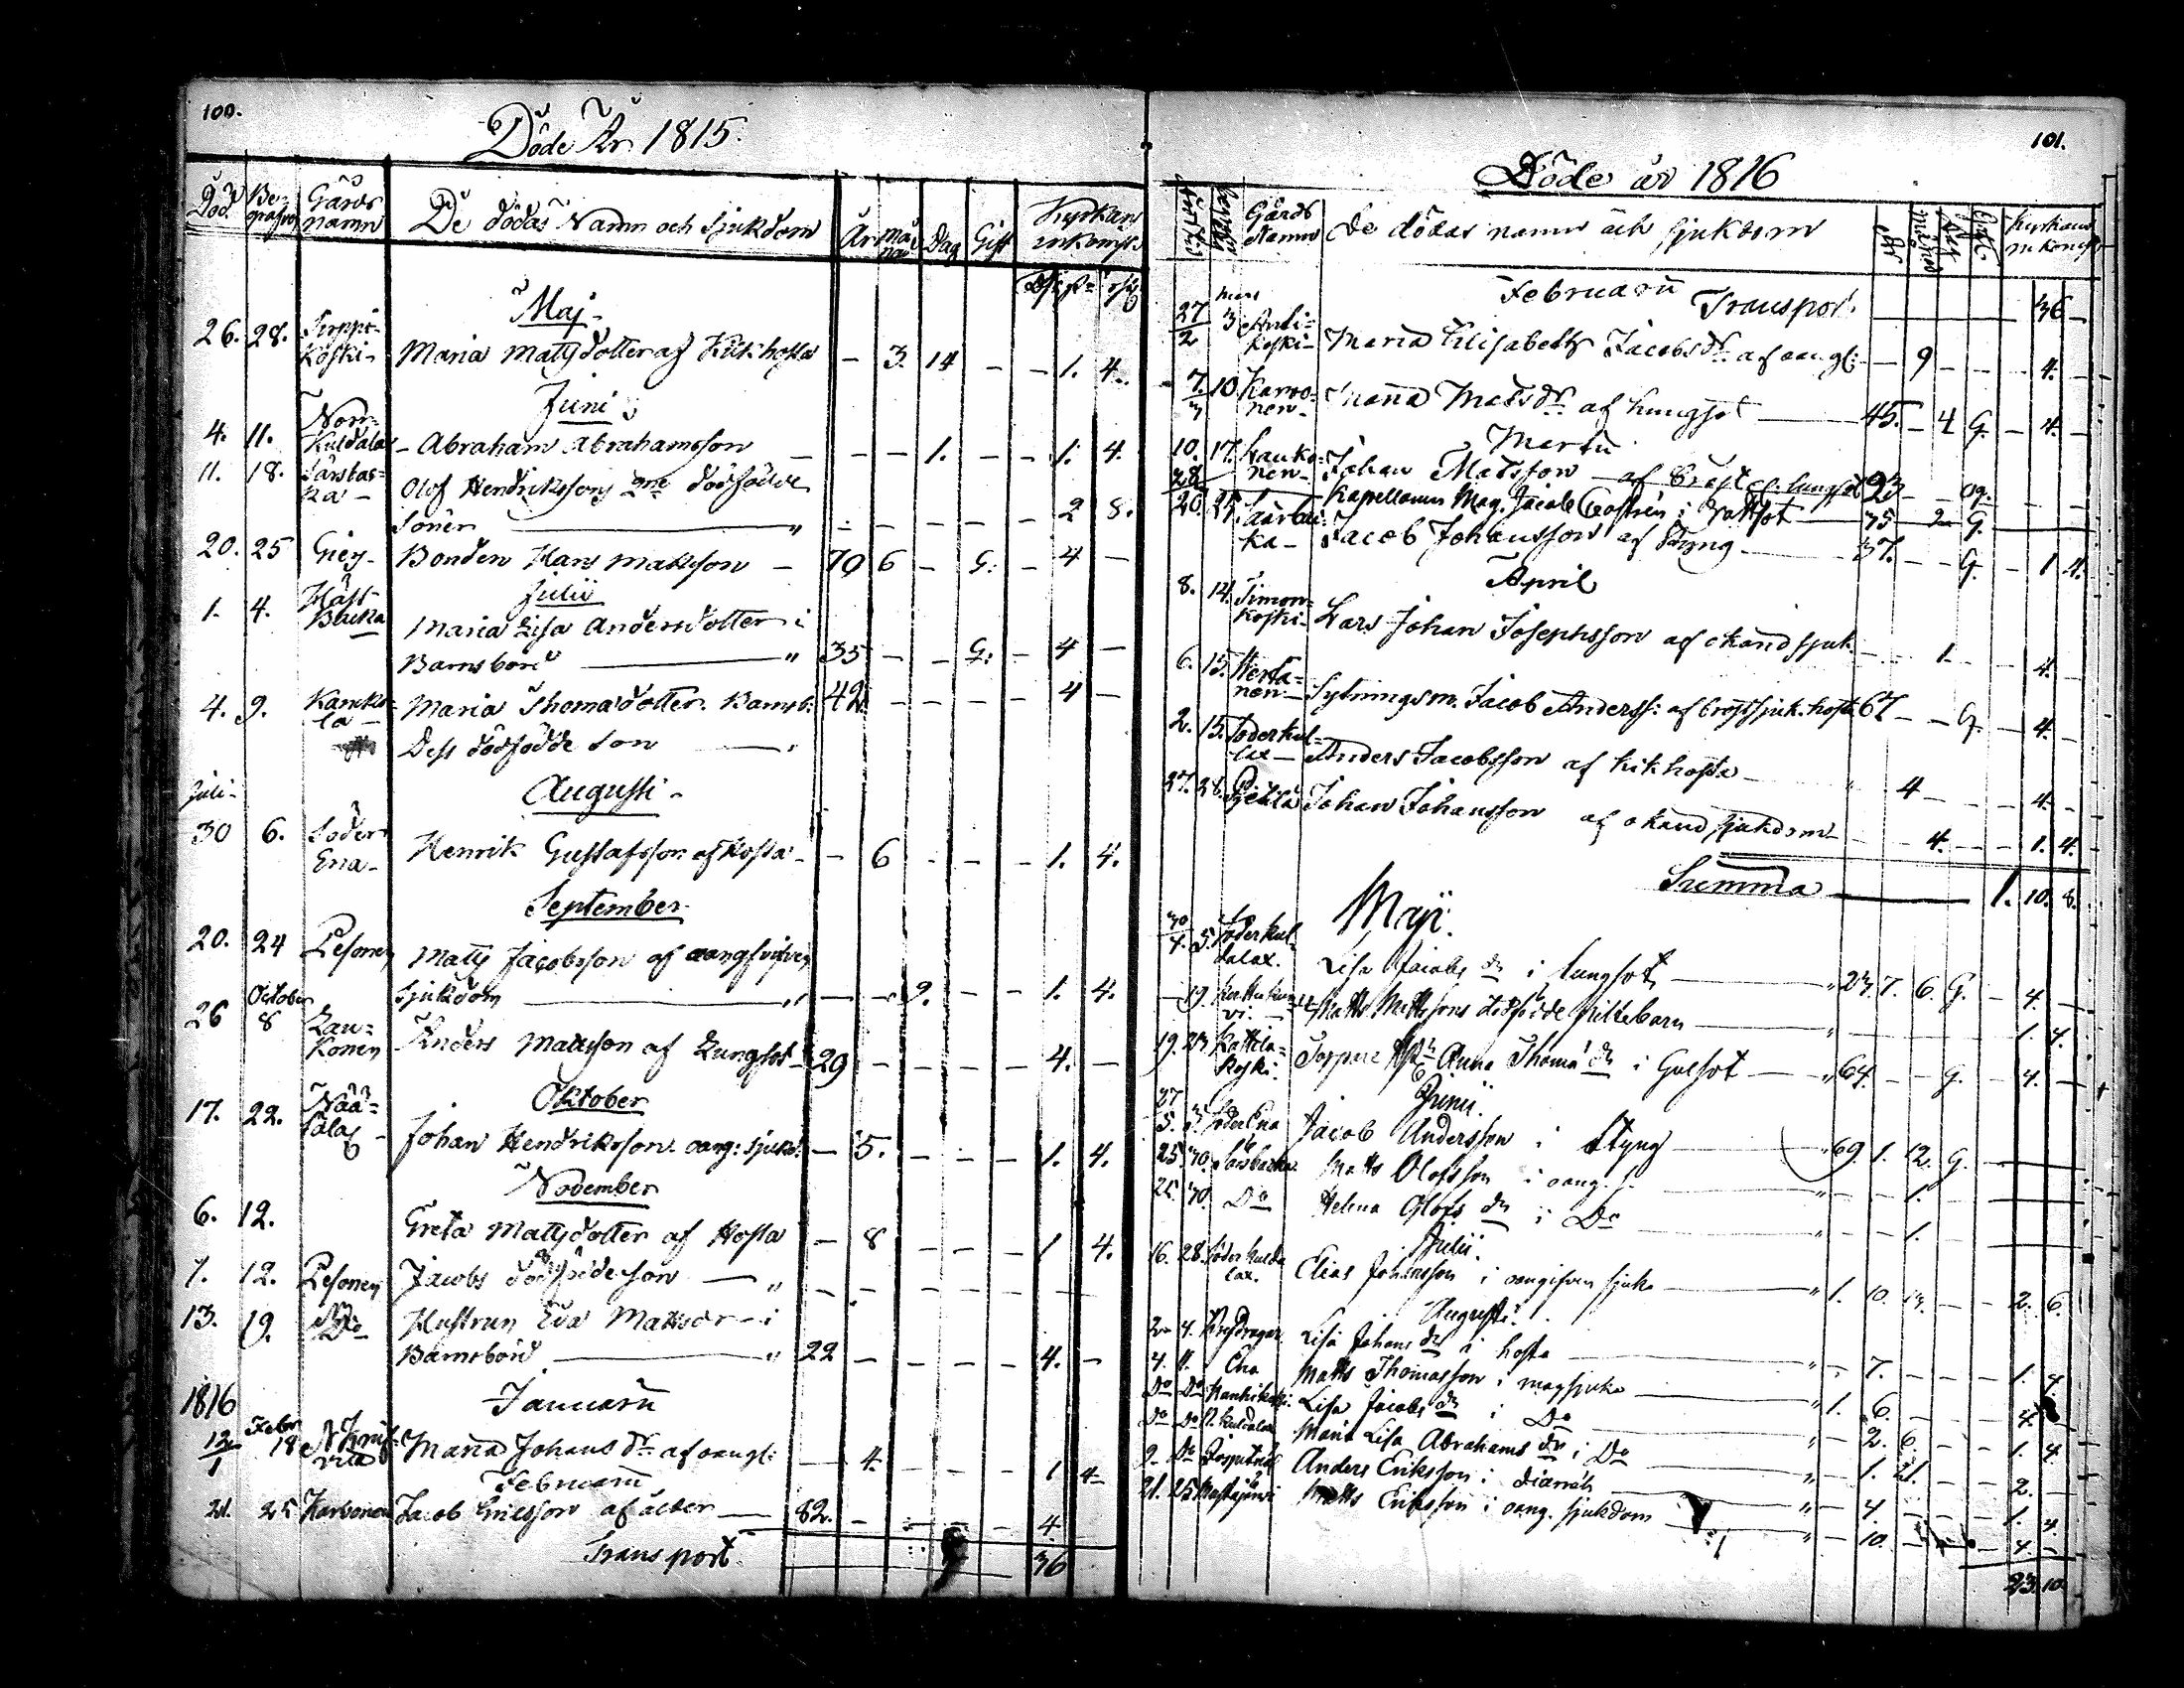 100.
Döde År 1815.
Död. Be-grafven Gårds namn De dödas Namn och Sjukdom År Må-nad Dag Gift Kyrkans inkomst
Maj
26. 28. Sirppi-
Koski- Maria Mattsdotter af Kikhosta — 3. 14 — — 1. 4.
Juni
4. 11. Norr-
Kuldala Abraham Abrahamsson — — 1. — — 1. 4.
11. 18. Sarsbac-
ka — Olof Hendrikssons 2ne dödfödde
Söner — „ — — — — 2 8.
20. 25 Giers- Bonden Hans Mattsson — 70 6 — G: — 4 —
Julii
1. 4. Häst-
Backa Maria Lisa Andersdotter i
Barnsbörd — „ 35 — — G: — 4 —
4. 9. Kamko-
la — Maria Thomasdotter. Barnsb: 42 — — — — 4 —
Dess dödfödde Son — „
Augusti -
Juli-
30 6. Söder
Ena- Henrik Gustafsson af Hosta — — 6 — — — 1. 4.
September
20. 24 Pesonen Matts Jacobsson af oangifven
Sjukdom — „ — — 9. — — 1. 4.
October
26 8 Kau-
konen Anders Mattsson af Lungsot — 29 — — — — 4. —
Oktober
17. 22. Nää-
sälag Johan Hendriksson. oang: sjukd: — 5. — — — 1. 4.
November
6. 12. Greta Mattsdotter af Hosta — 8 — — — 1 4.
7. 12. Pesonen Jacobs dödfödde son — „ — — — — — —
13. 19. Do Hustrun Eva Mattsdr — i
Barnsbörd — „ 22 — — — — 4. —
1816 Januarii
Febr
12/1 18 Maria Johansdr af oangf: — 4. — — — 1 4 —
Februarii
21. 25 Karvonen Jacob Ericsson af ålder — 82. — — — — 4
Transport 36
101.
Döde år 1816
Gårds Namn De dödas namn och sjukdom År Månad Dag Gift Kyrkans inkomst
Februarii
Transport. — 36 —
Mars
27/2 3 Anti-
koski- Maria Elisabeth Jacobsdr af oangf: — 9 — — — 4. —
7./3 10. Karvo-
nen- Maria Matsdr af lungsot — 45. — 4 G. — 4. —
Martii
10. 17. Kauko-
nen- Johan Matsson — af Bröst o. lungsot 23 — — og. — — —
28 Kapellanen Mag. Jacob Castrén i Rötsot — 35 — 2 G. —
20. 24. Saarbac-
ka — Jacob Johansson af Styng — 37. — — G. — 1 4.
April
8. 14. Simon-
koski- Lars Johan Josephsson af okänd sjuk. — — 1. — — 4. —
6. 15. Werta-
nen — Sytningsm. Jacob Anderss: af bröstsjuk. hosta 67 — — G. — 4. —
2. 15. Söderkul-
lax — Anders Jacobsson af kikhosta — 4 — — — 4. —
27. 28. Pjetilä Johan Johansson af okänd sjukdom — — 4. — — 1. 4.
Summa — 1. 10. 8.
Maji.
30/4. 5. Söderkul-
dalax. Lisa Jacobs dr i lungsot — „ 23. 7. 6. G. — 4. —
— 19. Matts Mattssons dödfödde flickebarn — „ — — — — 1. 4.
19. 23 Kattila-
koski. Torpare H:st: Anna Thomæ dr i Gulsot — „ 64. — — G. — 4. —
Junii.
27/5. 3. Söder Ena Jacob Andersson i Styng — „ 69. 1. 12. G. —
25. 30. Särsbacka Matts Olofsson i oang. s. — „ — — 1. —
25. 30. Do Helena Olofs dr i Do — „ — — 1. —
Julii.
16. 28. Söderkulda
lax. Elias Johansson i oangifven sjuka — „ 1. 10. 13. — — 2. 6.
Augusti.
2. 4. Lisa Johans dr i hosta — „ — 7. — — — 1. 4.
4. 11. Ena Matts Thomasson i magsjuka — „ 1. 6. — — — 4.
Do Do Lisa Jacobs dr i Do — „ — 2. 6. — — 1. 4.
Do Do N. Kuldalax Maria Lisa Abrahams dr i Do — „ — 1. 21. — — 2. —
9. Do Anders Eriksson i diarrée — „ — 4. — — — 1. 4.
21. 25 Matts Eriksson i oang. sjukdom — „ — 10. — — — 4. —
23. 10.